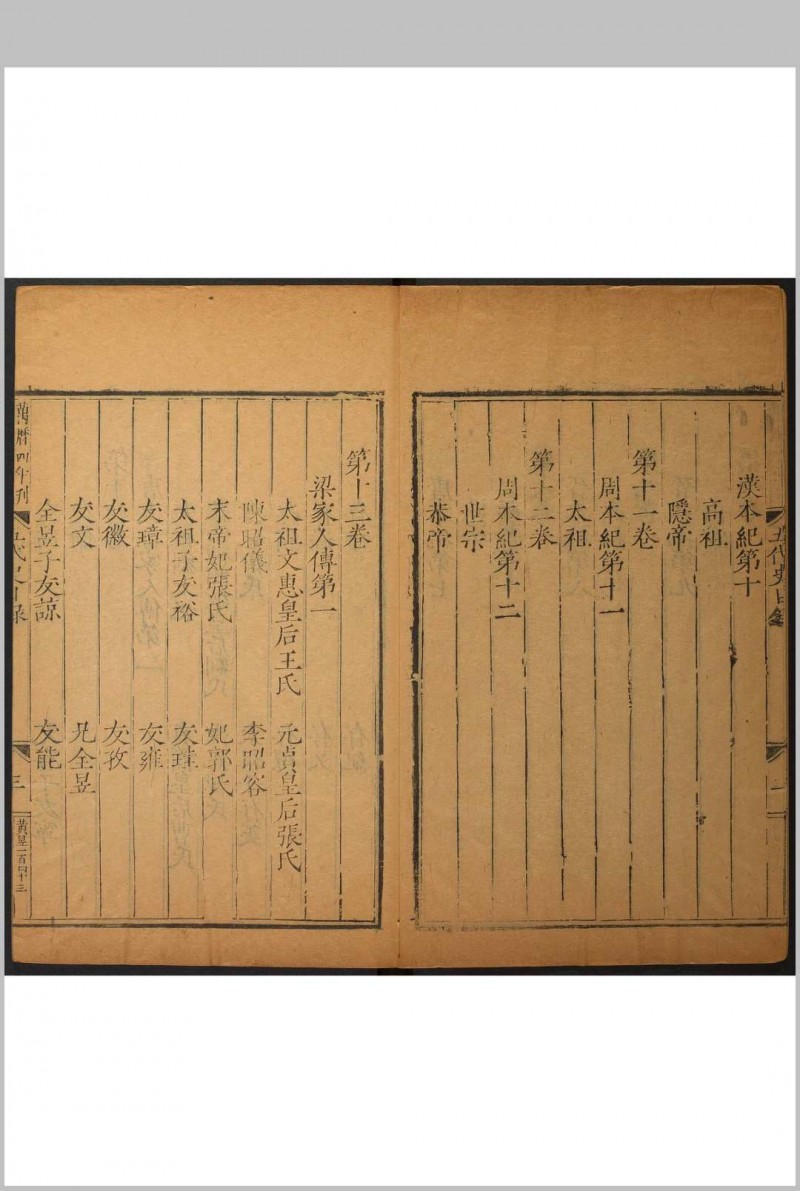 漢本紀第十
高祖
隱帝
第十一卷
周本紀第十一
太祖
第十二卷
周本紀第十二
世宗
恭帝
五代史目錄
二
第十三卷
梁家人傳第一
太祖文惠皇后王氏 元貞皇后張氏
陳昭儀 李昭容
末帝妃張氏 妃郭氏
太祖子友裕 友珪
友璋 友雍
友徽 友孜
友文 兄全昱
全昱子友諒 友能
萬曆四年刊
五代史目錄
三